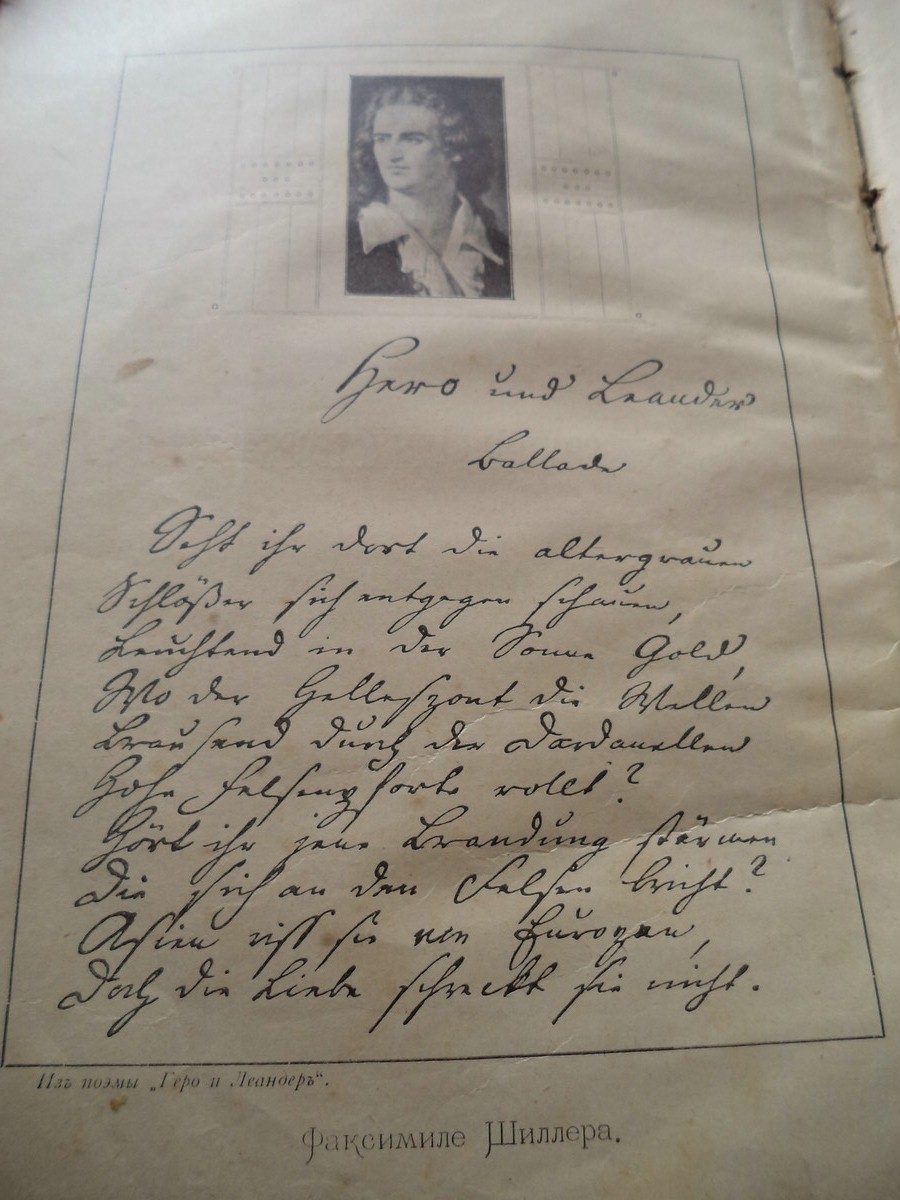 Hero und Leander
Ballade
Seht ihr dort die altergrauen
Schlößer sich entgegen schauen,
Leuchtend in der Sonne Gold,
Wo der Hellespont die Wellen
Brausend durch der Dardanellen
Hohe Felsenpforte rollt?
Hört ihr jene Brandung stürmen
Die sich an den Felsen bricht?
Asien riss sie von Europen,
Doch die Liebe schreckt sie nicht.
Изъ поэмы „Геро и Леандеръ“.
Факсимиле Шиллера.